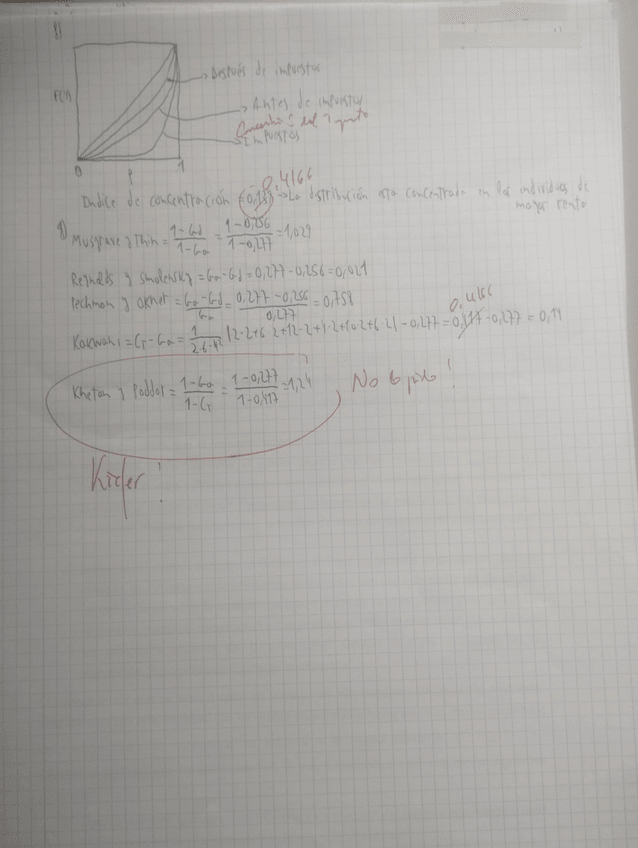 f)
Después de impuestos
Antes de impuestos
Impuestos
0 P 1
0,4166
Indice de concentración → La distribución esta concentrada en los individuos de
mayor renta
g) Musgrave y Thin = \frac{1-Gd}{1-Ga} = \frac{1-0,256}{1-0,277} = 1,029
Reynolds y Smolensky = Ga-Gd = 0,277-0,256 = 0,021
Pechman y Okner = \frac{Ga-Gd}{Ga} = \frac{0,277-0,256}{0,277} = 0,758
0,4166
Kakwani = Ct-Ga = -0,277 = 0,417-0,277 = 0,14
Khetan y Poddar = \frac{1-Ga}{1-Ct} = \frac{1-0,277}{1-0,417} = 1,24 No lo pido!
Kiefer!